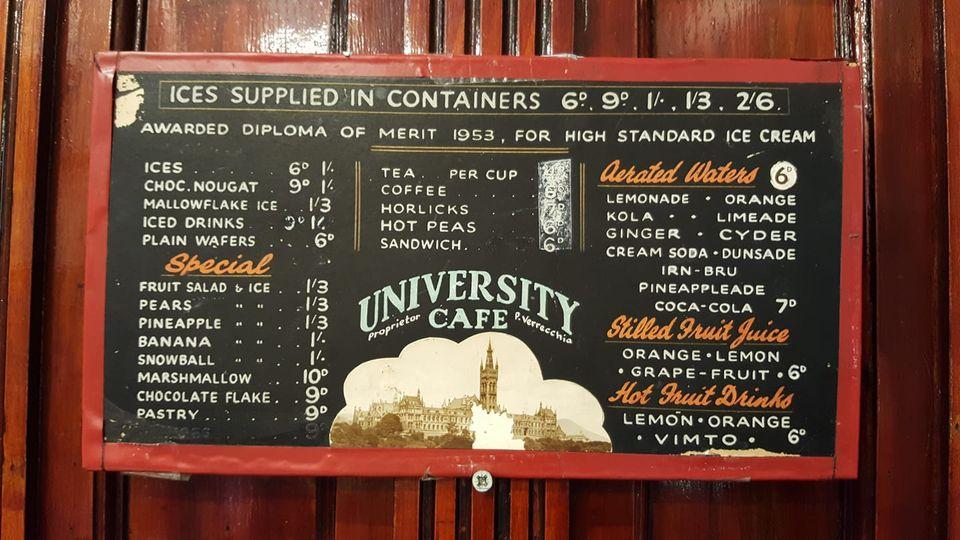 ICES SUPPLIED IN CONTAINERS 6ᴰ. 9ᴰ. 1/-. 1/3. 2/6.
AWARDED DIPLOMA OF MERIT 1953, FOR HIGH STANDARD ICE CREAM
ICES 6ᴰ 1/-
CHOC. NOUGAT . 9ᴰ 1/-
MALLOWFLAKE ICE . 1/3
ICED DRINKS 9ᴰ 1/-
PLAIN WAFERS . . 6ᴰ
Special
FRUIT SALAD & ICE . 1/3
PEARS " " . 1/3
PINEAPPLE " " . 1/3
BANANA " " . 1/-
SNOWBALL " " . 1/-
MARSHMALLOW . . 10ᴰ
CHOCOLATE FLAKE . 9ᴰ
PASTRY . . . . 9ᴰ
TEA . PER CUP .
COFFEE . . .
HORLICKS . .
HOT PEAS . . 6ᴰ
SANDWICH. . . 6ᴰ
UNIVERSITY
CAFE
Proprietor P. Verrecchia
Aerated Waters 6ᴰ
LEMONADE • ORANGE
KOLA • • LIMEADE
GINGER • CYDER
CREAM SODA • DUNSADE
IRN-BRU
PINEAPPLEADE
COCA-COLA 7ᴰ
Stilled Fruit Juice
ORANGE • LEMON
• GRAPE-FRUIT • 6ᴰ
Hot Fruit Drinks
LEMON • ORANGE
• VIMTO • 6ᴰ